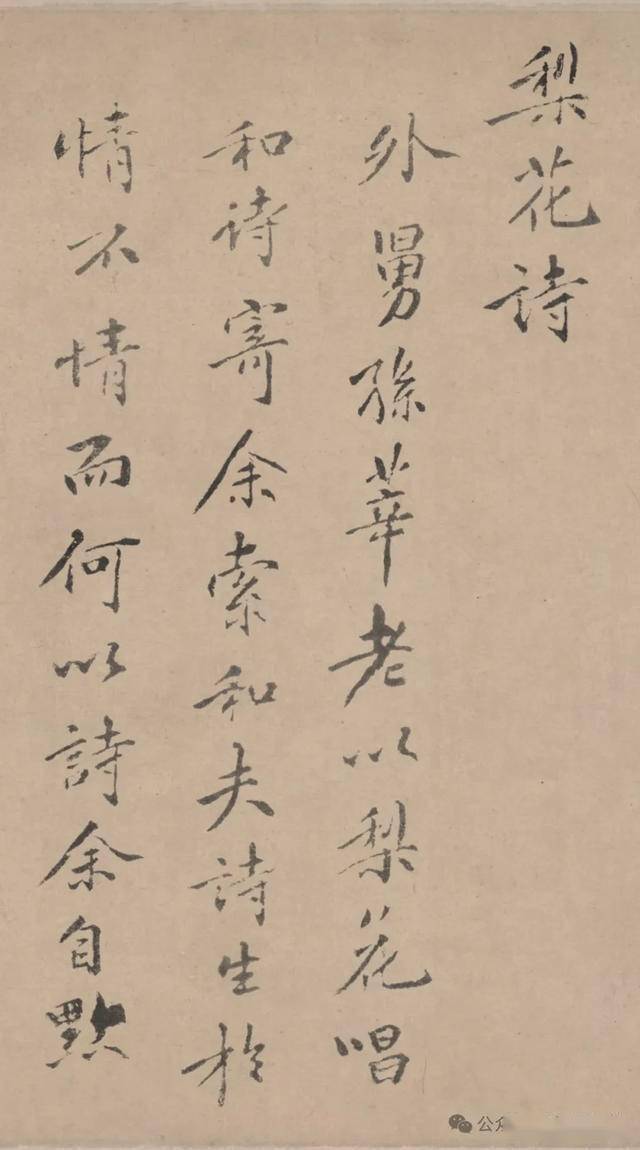 梨花詩
外舅孫莘老以梨花唱
和诗寄余索和夫詩生於
情不情而何以詩余自點
公众